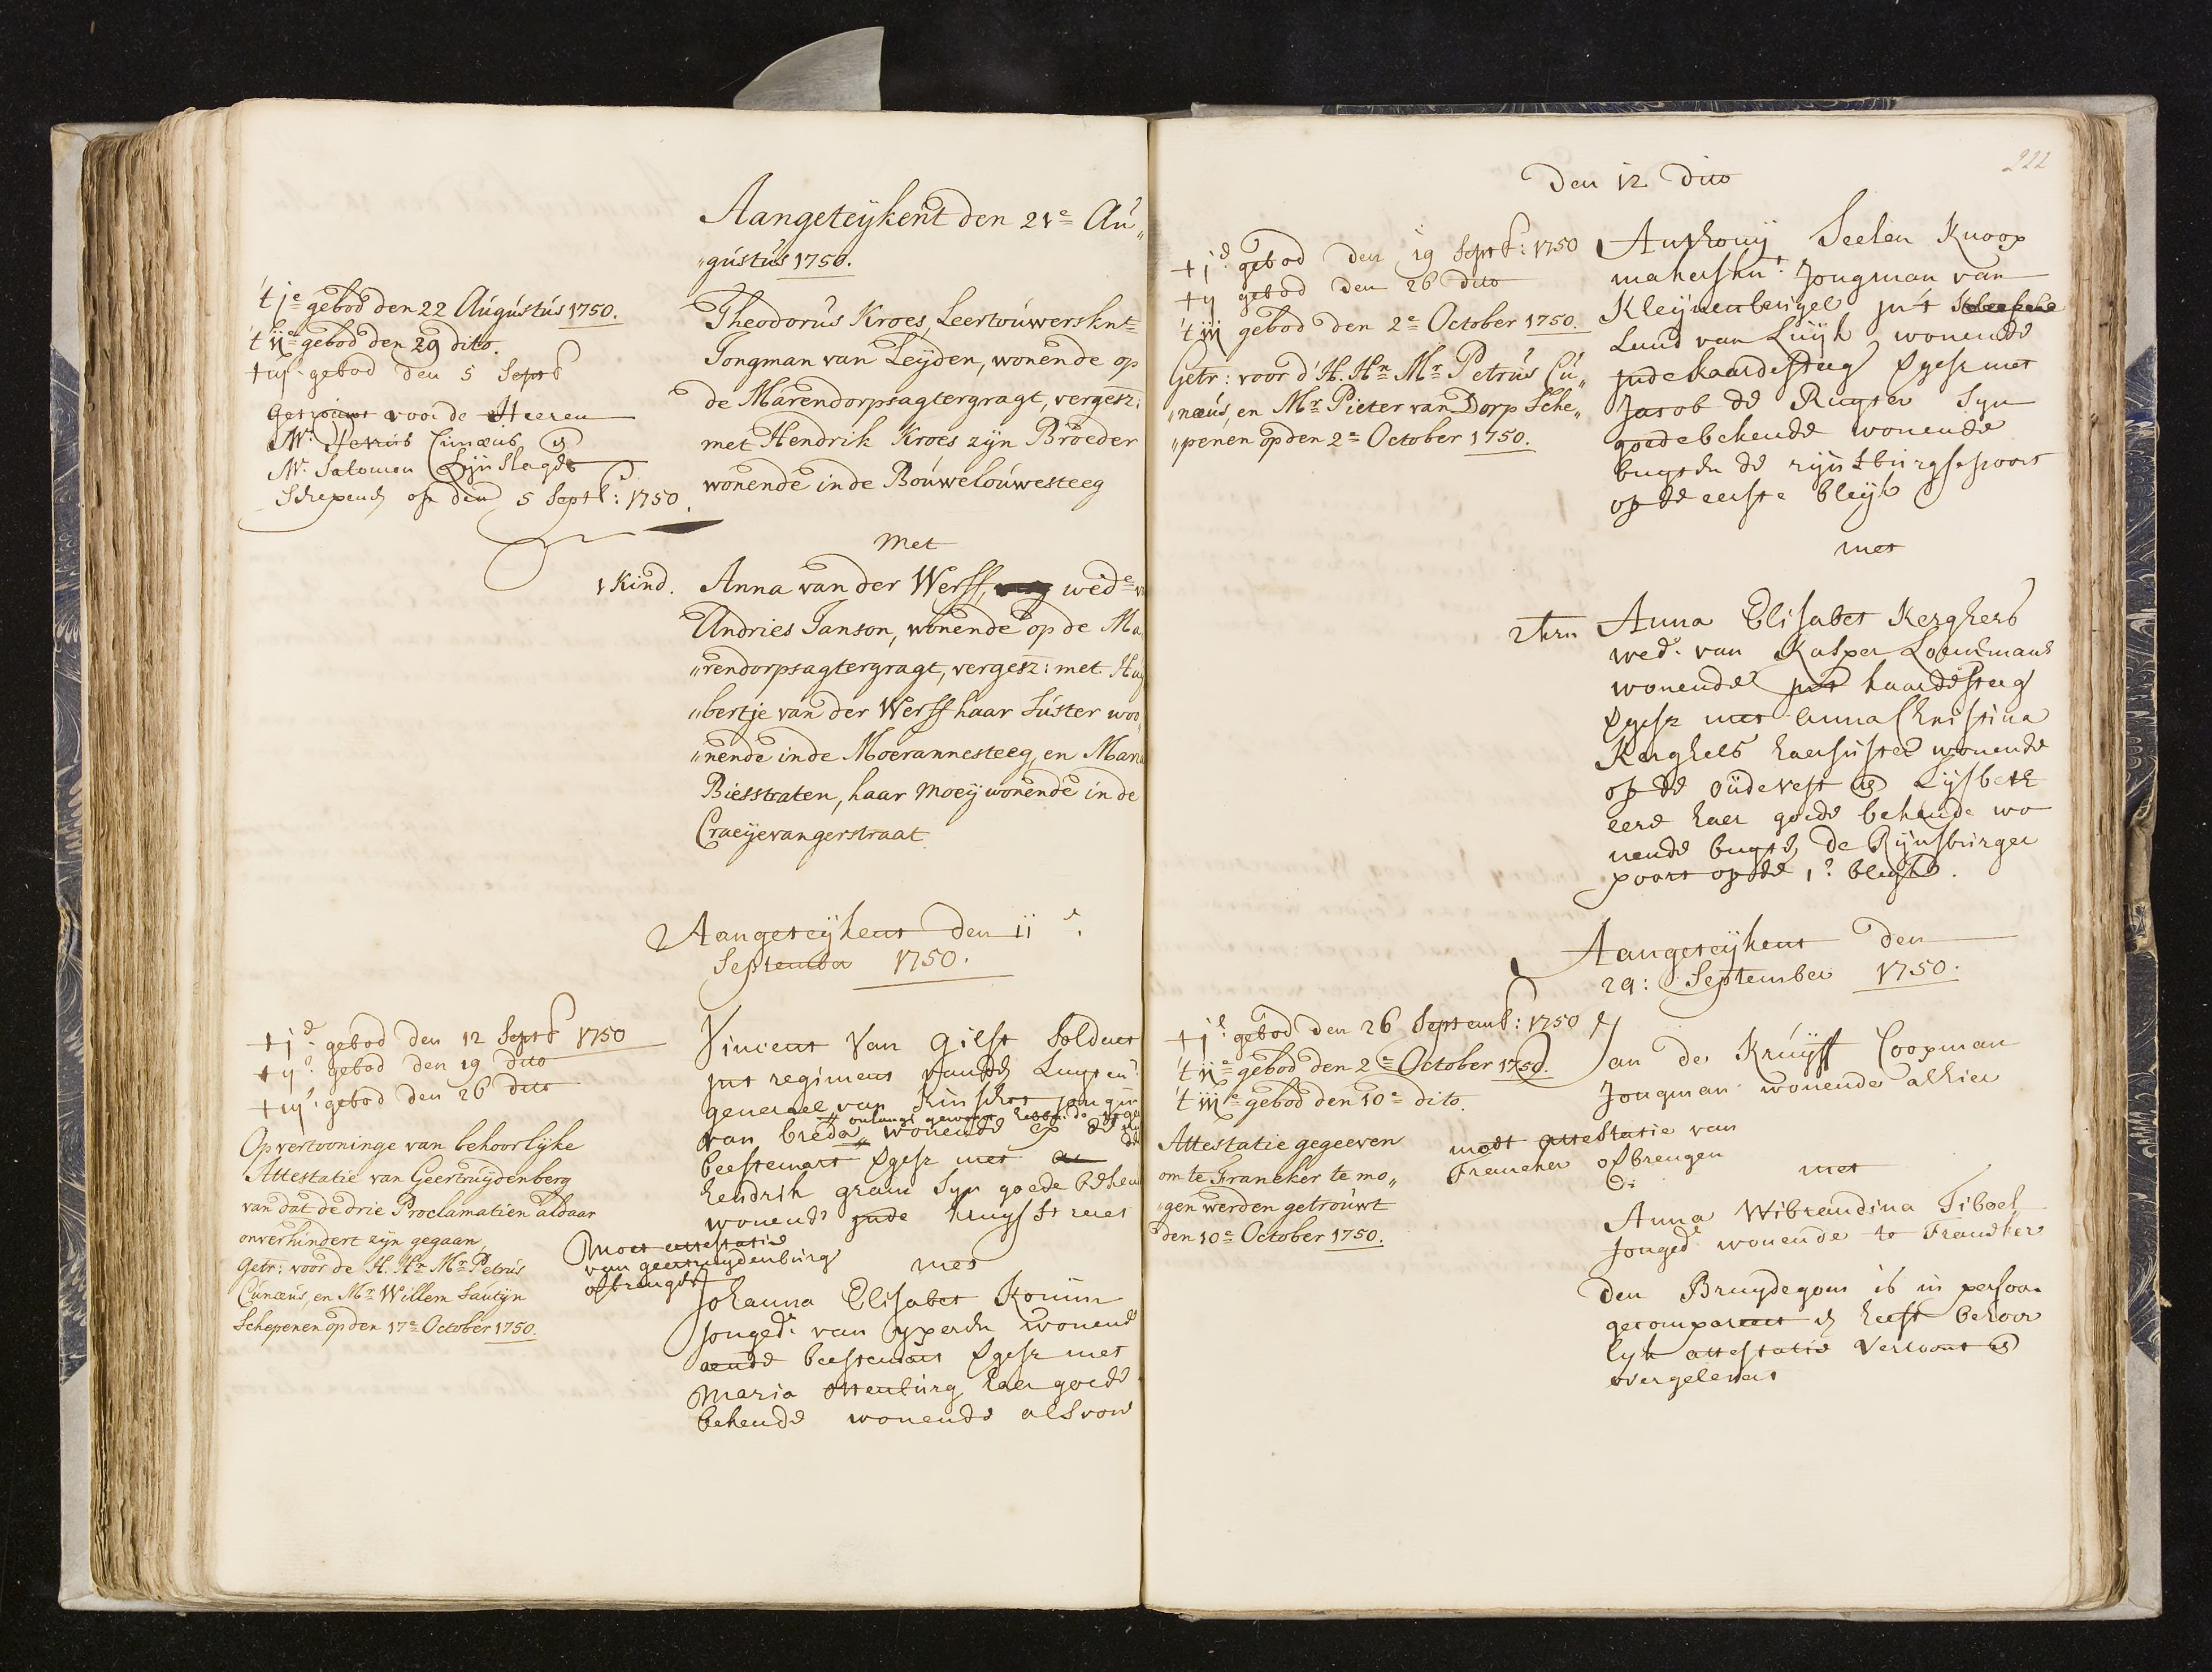 Aangeteijkent den 21e Au„
„gustus 1750.
't je gebod den 22 Augustus 1750.
't ije gebod den 29 dito.
t iij gebod den 5 Septb
getrouwt voor de Heeren
Mr. Petrus Cunæus en
Mr. Salomon Lijnslager
Schepenen op den 5 Septb: 1750.
Theodorus Kroes, Leertouwersknt
Jongman van Leijden, wonende op
de Marendorpsagtergragt, vergesz:
met Hendrik Kroes zijn Broeder
wonende inde Bouwelouwesteeg
Met
1 Kind.
Anna van der Werff, wede v
Andries Janson, wonende op de Ma
„rendorpsagtergragt, vergesz: met Huij
„bertje van der Werff haar Suster woo
„nende inde Moerannesteeg, en Maria
Biesstraten, haar Moeij wonende in de
Craeijevangerstraat
Aangeteijkent den 11e
September 1750.
t je gebod den 12 Septb 1750
t ije gebod den 19 dito
t iije gebod den 26 dito
Op vertooninge van behoorlijke
Attestatie van Geertruijdenberg
van dat de drie Proclamatien aldaar
onverhindert zijn gegaan,
Getr: voor de H. Hn Mr Petrus
Cunæus, en Mr Willem Sautijn
Schepenen op den 17e October 1750.
Vincent Van Gilst Soldaet
int regiment vanden Luyten:
generael van Kinschot jongm
van breda wonende op de
beestemart vgesz met
hendrik gram Syn goede beken
wonende inde kruysstraet
Moet attestatie
van geertruydenburg
opbrengen
met
Johanna Elisabet Konim
jonged. van yperen wonend
aende beestemart vgesz met
Maria ottenburg haer goede
bekende wonende als vore
222
Den 12 dito
t je gebod den 19 Septb: 1750
t ij gebod den 26 dito
't iij gebod den 2e October 1750.
Getr: voor d'H. Hn Mr Petrus Cu„
„næus, en Mr Pieter van Dorp Sche„
„penen op den 2e October 1750.
Anthonij Seelen Knoop
makersknt. Jongman van
Kleijnenbrugel int
Land van Luijk wonende
inde baardesteeg vgesz met
Jacob de Ruyter Syn
goede bekende wonende
buyten de rijnsburgsepoort
op de eerste bleijk
met
2 krn
Anna Elisabet Kerghers
wed. van Kasper Loenmans
wonende int baardesteeg
vgesz met anna Christina
Kerghers haer suster wonende
op de oudevest en Lijsbett
eere haer goede bekende wo
nende buyten de Rijnsburger
poort op de 1e bleijk.
Aangeteijkent den
29: September 1750.
t je gebod den 26 Septemb: 1750
't ije gebod den 2e October 1750.
't iije gebod den 10e dito.
Attestatie gegeeven
om te Franeker te mo„
„gen werden getrouwt
den 10e October 1750.
Jan de Kruijff Coopman
Jongman wonende alhier
moet attestatie van
Franeker opbrengen
met
Anna Wibrandina Tiboel
Jonged. wonende te Franeker
den Bruydegom is in persoon
gecompareert en heeft behoor
lyk attestatie vertoont en
overgelevert